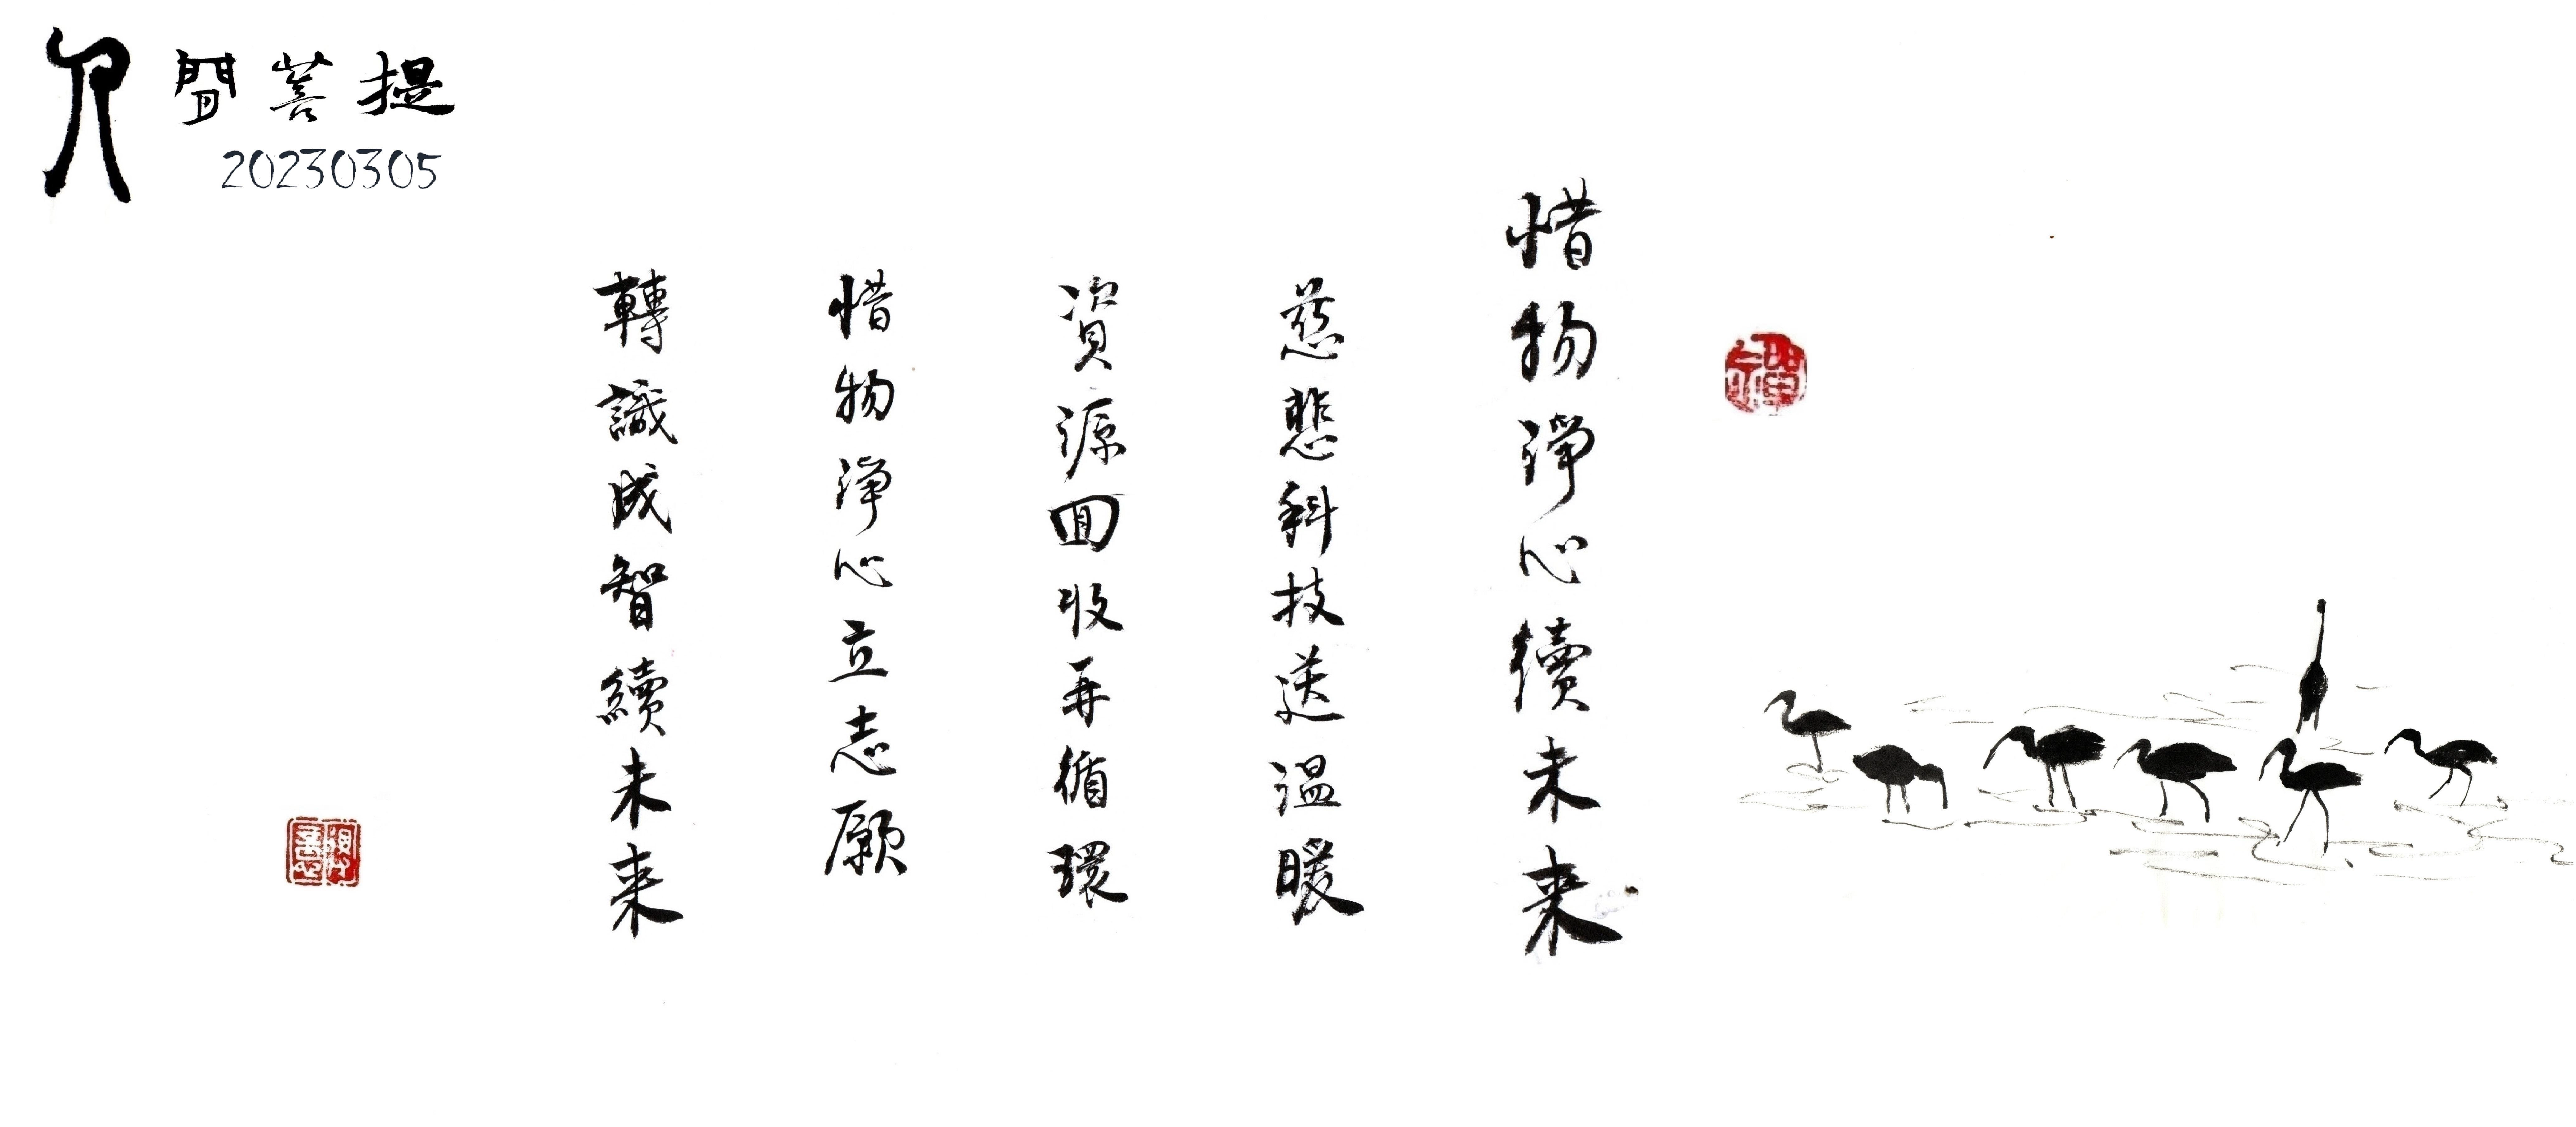 人間菩提
20230305
惜物淨心續未來
慈悲科技送溫暖
資源回收再循環
惜物淨心立志願
轉識成智續未來